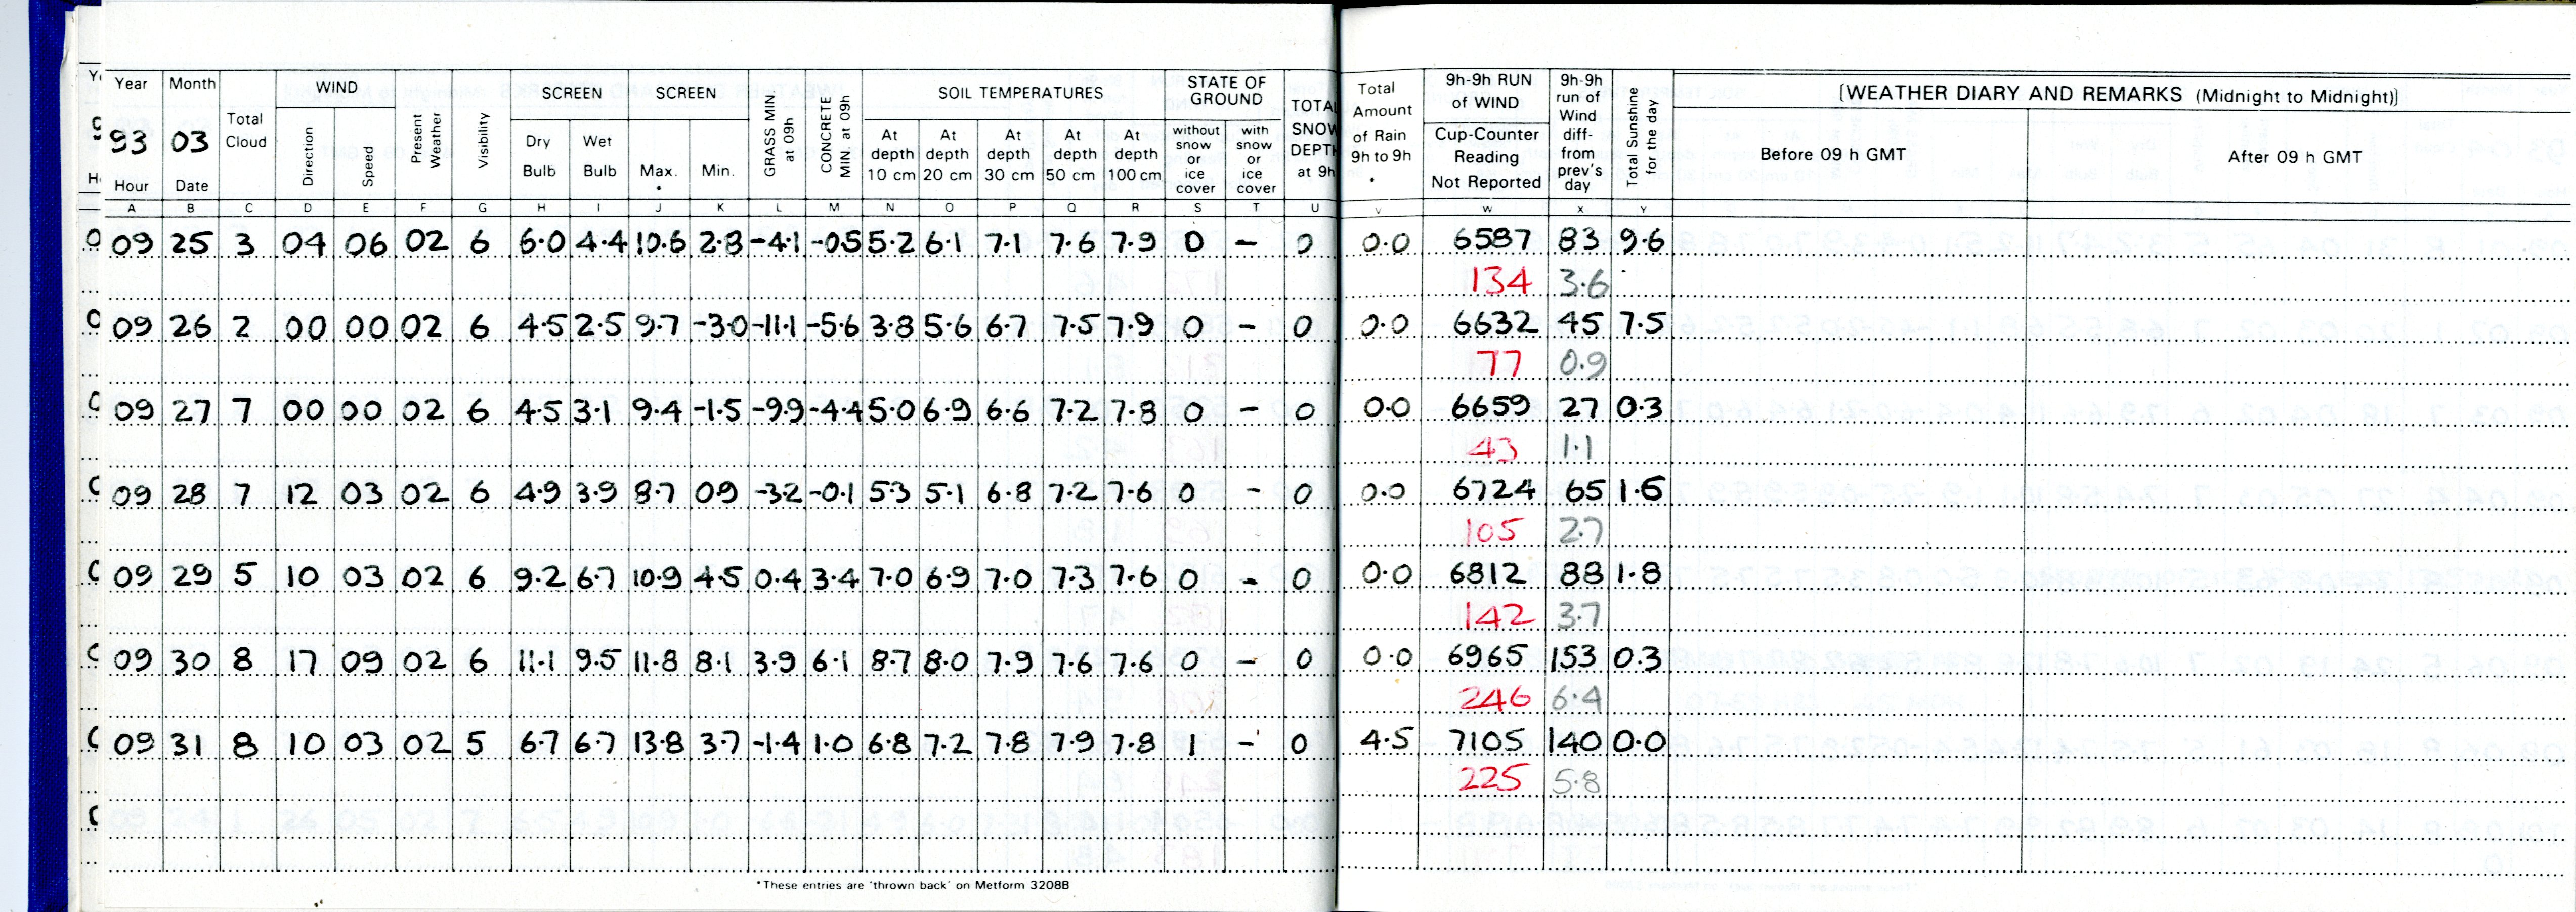 Year Month Total Cloud WIND Present Weather Visibility SCREEN SCREEN GRASS MIN at 09h CONCRETE MIN at 09h SOIL TEMPERATURES STATE OF GROUND TOTAL SNOW DEPTH at 9h Total Amount of Rain 9h to 9h * 9h-9h RUN of WIND 9h-9h run of Wind diff- from prev's day Total Sunshine for the day (WEATHER DIARY AND REMARKS (Midnight to Midnight))
93 03 Direction Speed Dry Bulb Wet Bulb Max. * Min. At depth 10 cm At depth 20 cm At depth 30 cm At depth 50 cm At depth 100 cm without snow or ice cover with snow or ice cover Cup-Counter Reading Not Reported Before 09 h GMT After 09 h GMT
Hour Date
A B C D E F G H I J K L M N O P Q R S T U V W X Y
09 25 3 04 06 02 6 6.0 4.4 10.6 2.8 -4.1 -0.5 5.2 6.1 7.1 7.6 7.9 0 - 0 0.0 6587 83 9.6
134 3.6
09 26 2 00 00 02 6 4.5 2.5 9.7 -3.0 -11.1 -5.6 3.8 5.6 6.7 7.5 7.9 0 - 0 0.0 6632 45 7.5
77 0.9
09 27 7 00 00 02 6 4.5 3.1 9.4 -1.5 -9.9 -4.4 5.0 6.9 6.6 7.2 7.8 0 - 0 0.0 6659 27 0.3
43 1.1
09 28 7 12 03 02 6 4.9 3.9 8.7 09 -3.2 -0.1 5.3 5.1 6.8 7.2 7.6 0 - 0 0.0 6724 65 1.6
105 2.7
09 29 5 10 03 02 6 9.2 6.7 10.9 4.5 0.4 3.4 7.0 6.9 7.0 7.3 7.6 0 - 0 0.0 6812 88 1.8
142 3.7
09 30 8 17 09 02 6 11.1 9.5 11.8 8.1 3.9 6.1 8.7 8.0 7.9 7.6 7.6 0 - 0 0.0 6965 153 0.3
246 6.4
09 31 8 10 03 02 5 6.7 6.7 13.8 3.7 -1.4 1.0 6.8 7.2 7.8 7.9 7.8 1 - 0 4.5 7105 140 0.0
225 5.8
*These entries are 'thrown back' on Metform 3208B